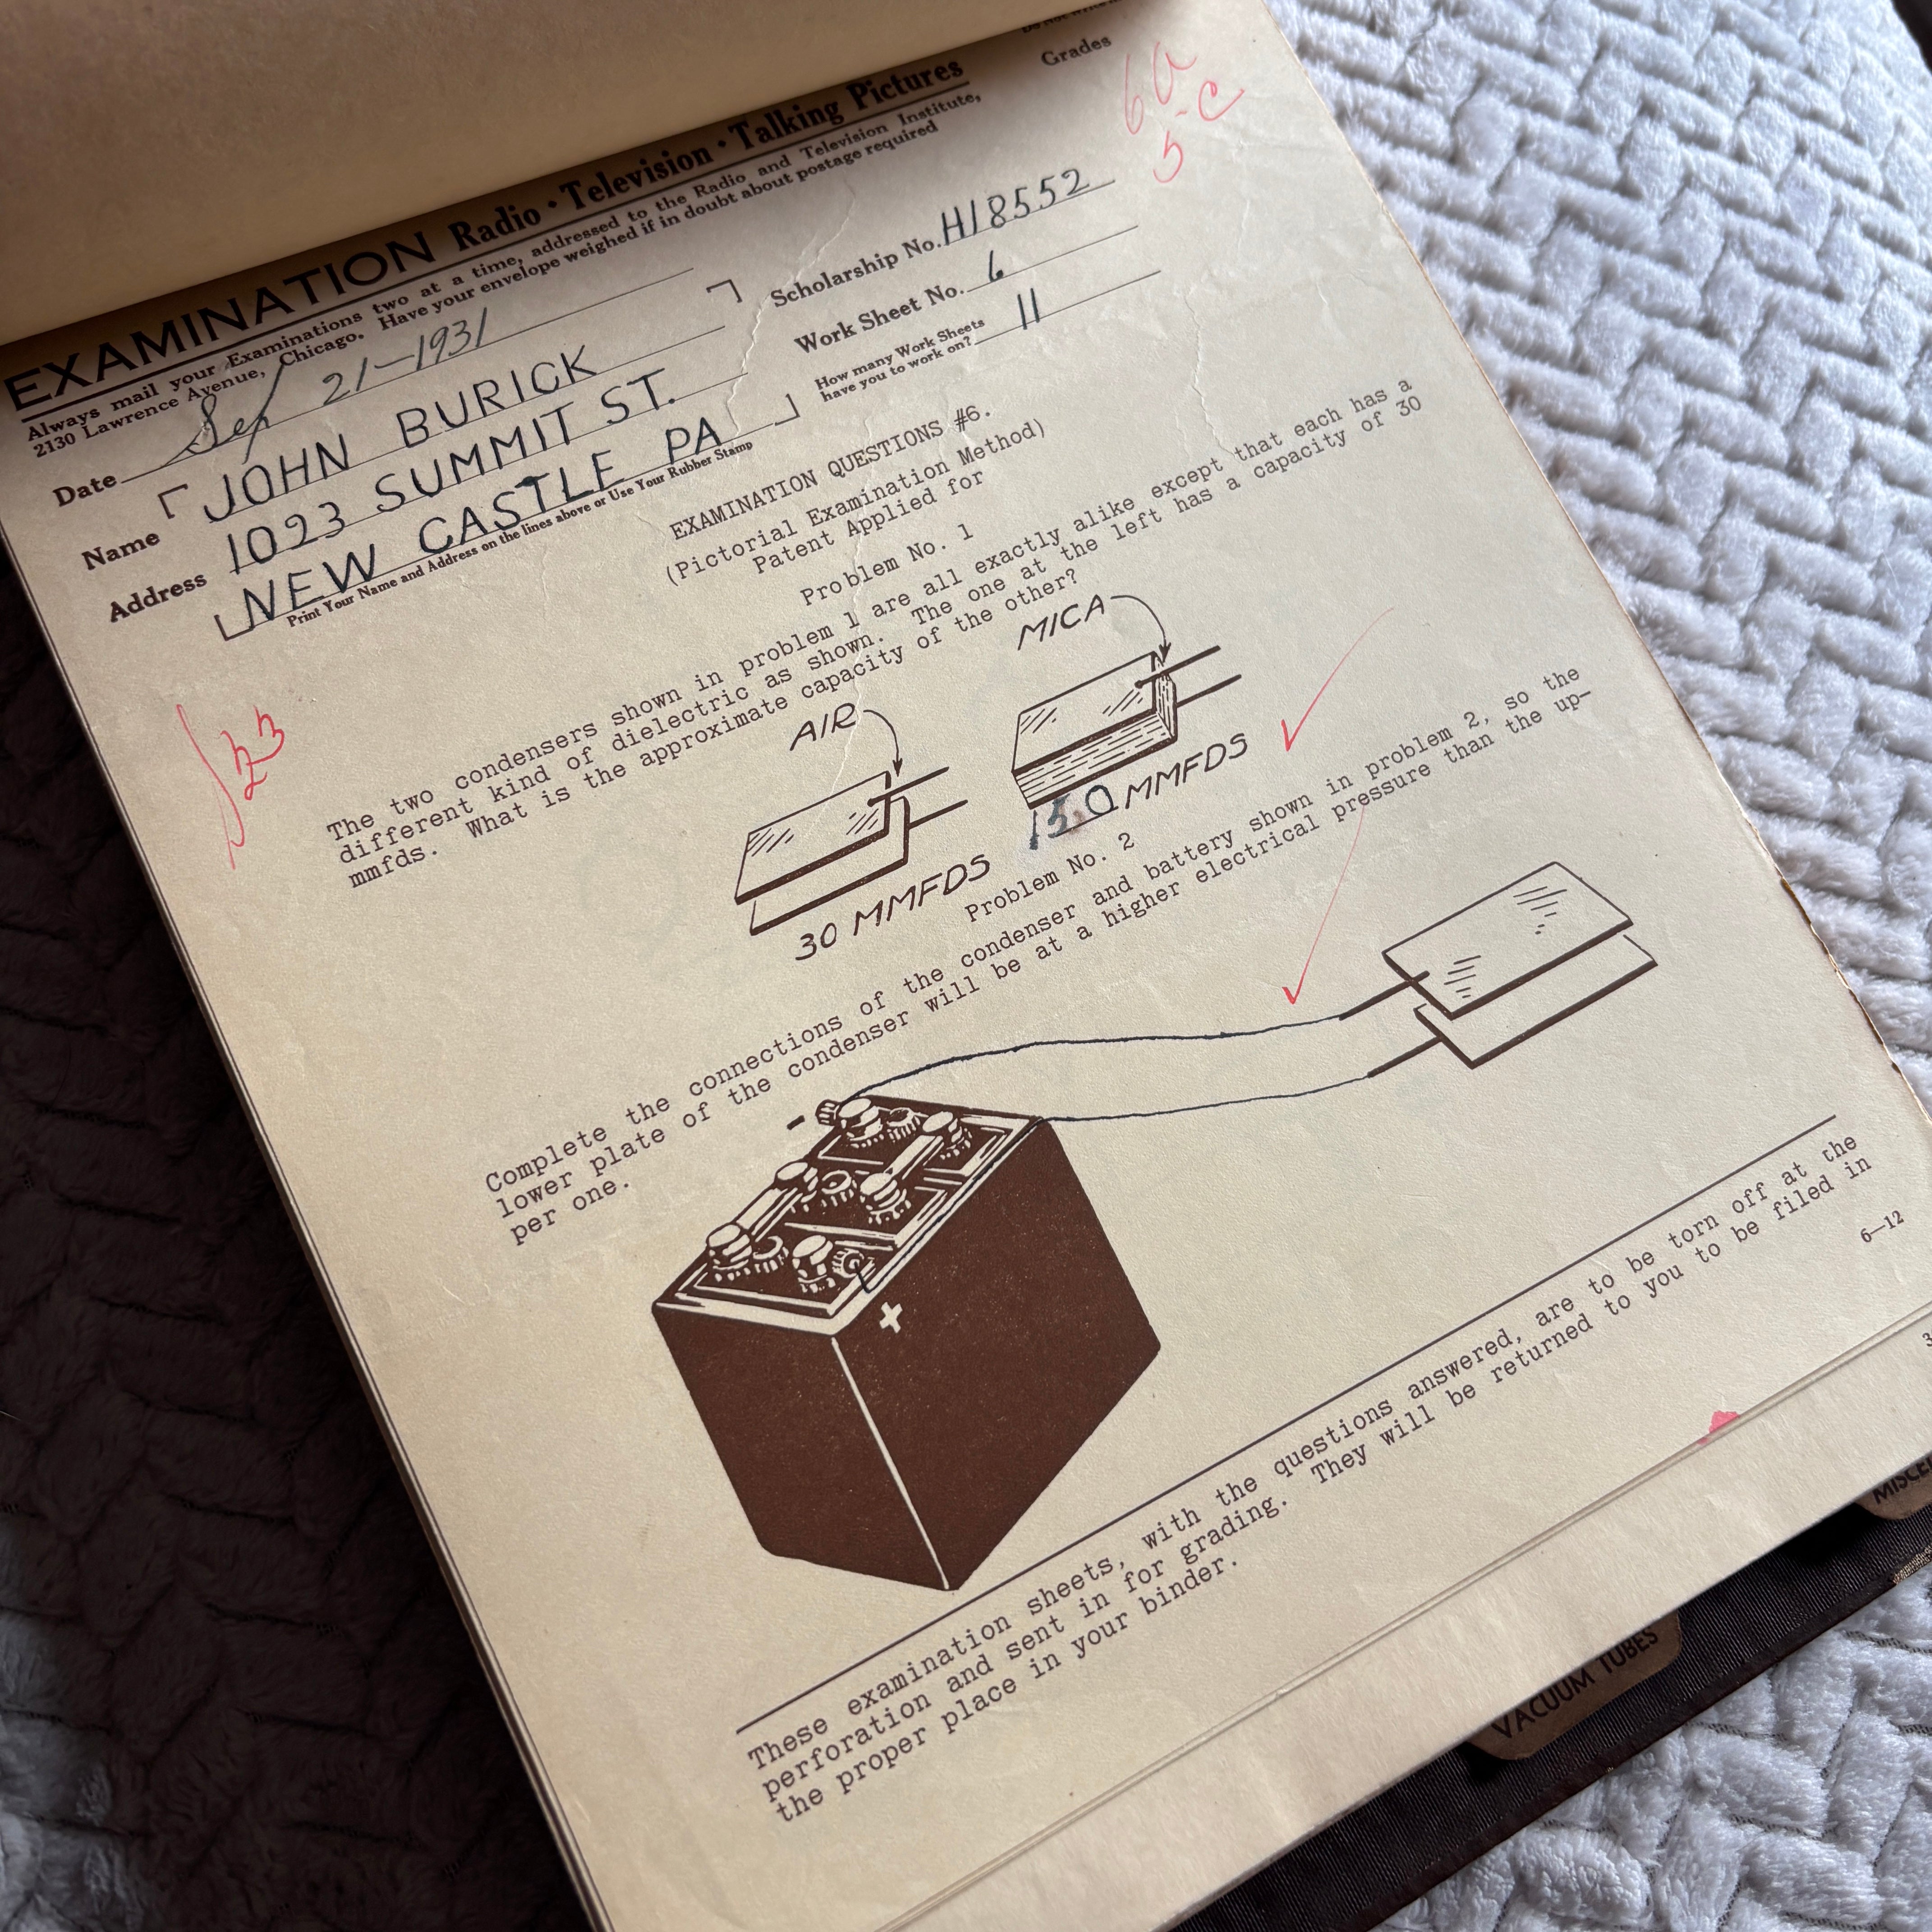 Grades
EXAMINATION Radio · Television · Talking Pictures
Always mail your Examinations two at a time, addressed to the Radio and Television Institute,
2130 Lawrence Avenue, Chicago. Have your envelope weighed if in doubt about postage required
6a
5-C
Date Sep 21-1931
Scholarship No. H18552
Name JOHN BURICK
Work Sheet No. 6
Address 1023 SUMMIT ST.
How many Work Sheets
have you to work on? 11
NEW CASTLE PA
Print Your Name and Address on the lines above or Use Your Rubber Stamp
EXAMINATION QUESTIONS #6.
(Pictorial Examination Method)
Patent Applied for
Problem No. 1
The two condensers shown in problem 1 are all exactly alike except that each has a
different kind of dielectric as shown. The one at the left has a capacity of 30
mmfds. What is the approximate capacity of the other?
AIR
MICA
30 MMFDS
150 MMFDS
Problem No. 2
Complete the connections of the condenser and battery shown in problem 2, so the
lower plate of the condenser will be at a higher electrical pressure than the up-
per one.
-
+
These examination sheets, with the questions answered, are to be torn off at the
perforation and sent in for grading. They will be returned to you to be filed in
the proper place in your binder.
6-12
VACUUM TUBES